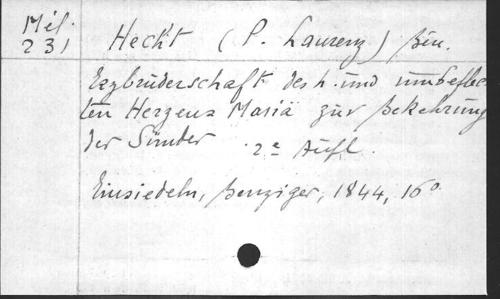 Mél. 231
Hecht (P. Laurenz) Ben.
Erzbruderschaft des h. und unbeflec
ten Herzens Mariä zur Bekehrung
der Sünder. 2e Aufl.
Einsiedeln, Benziger, 1844, 16°